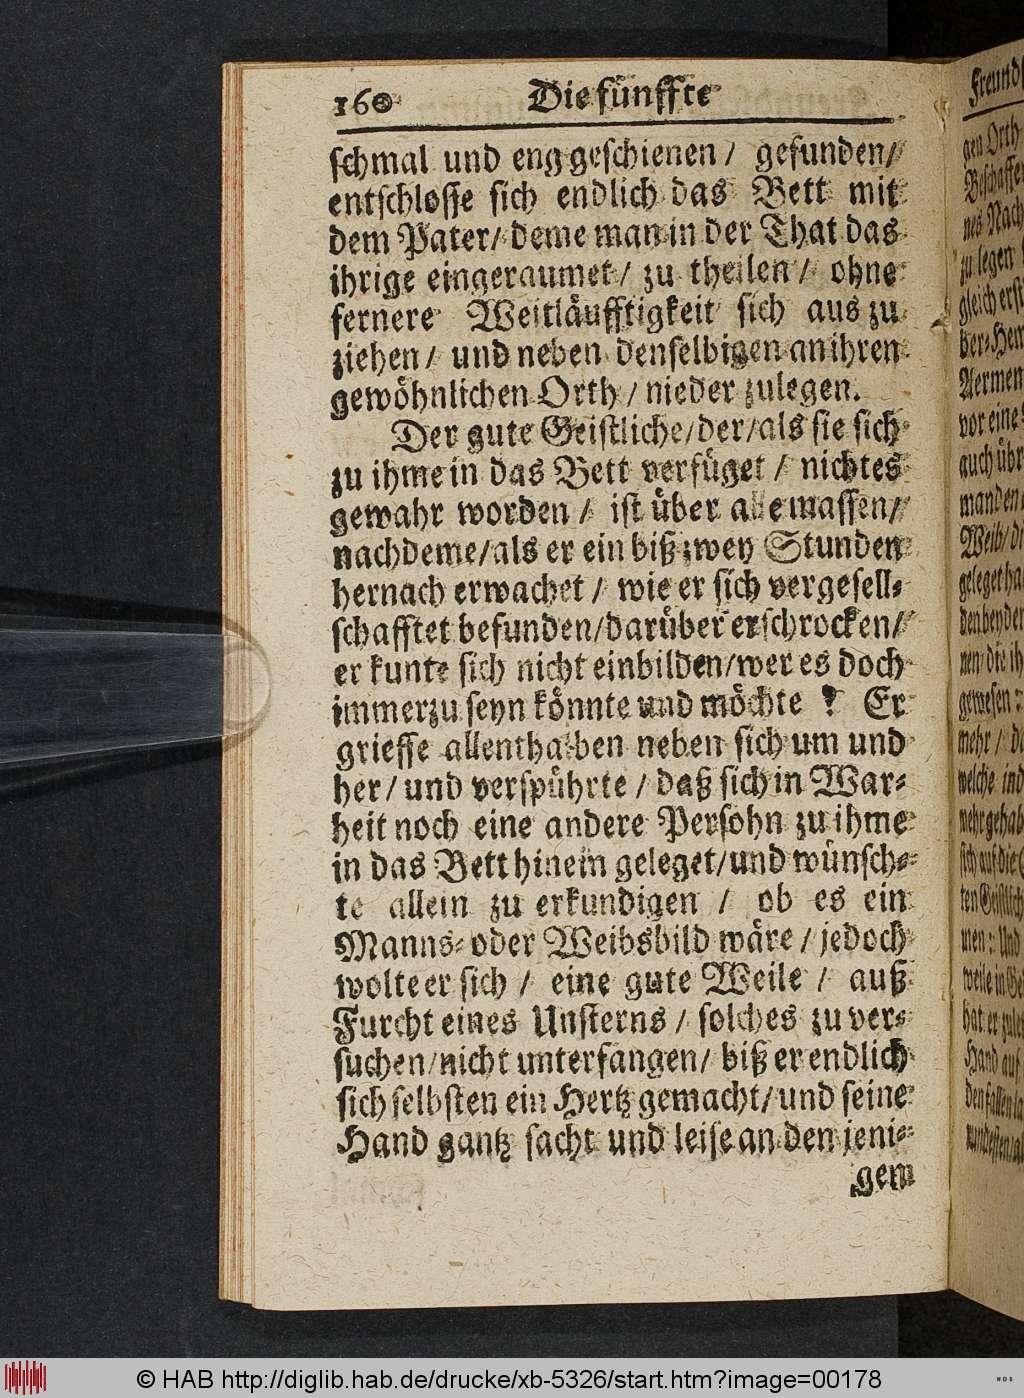 160 Die fünffte
schmal und eng geschienen / gefunden /
entschlosse sich endlich das Bett mit
dem Pater / deme man in der That das
ihrige eingeraumet / zu theilen / ohne
fernere Weitläufftigkeit sich aus zu
ziehen / und neben denselbigen an ihren
gewöhnlichen Orth / nieder zulegen.
Der gute Geistliche / der / als sie sich
zu ihme in das Bett verfüget / nichtes
gewahr worden / ist über alle massen /
nachdeme / als er ein biß zwey Stunden
hernach erwachet / wie er sich vergesell-
schafftet befunden / darüber erschrocken /
er kunte sich nicht einbilden / wer es doch
immerzu seyn könnte und möchte ? Er
grieffe allenthalben neben sich um und
her / und verspührte / daß sich in War-
heit noch eine andere Persohn zu ihme
in das Bett hinein geleget / und wünsch-
te allein zu erkundigen / ob es ein
Manns- oder Weibsbild wäre / jedoch
wolte er sich / eine gute Weile / auß
Furcht eines Unsterns / solches zu ver-
suchen / nicht unterfangen / biß er endlich
sich selbsten ein Hertz gemacht / und seine
Hand gantz sacht und leise an den jeni-
gen
Freund
gen Orth
nes Nach
zu legen
gleich erst
Aermen
vor eine
auch übr
manden
Weib / di
geleget ha
den beyder
nen / die ih
gewesen :
mehr / da
welche ind
mehr gehab
sich auf die
ten Geistlich
men : Und
weile in Ge
hat er zule
Hand auf
© HAB http://diglib.hab.de/drucke/xb-5326/start.htm?image=00178